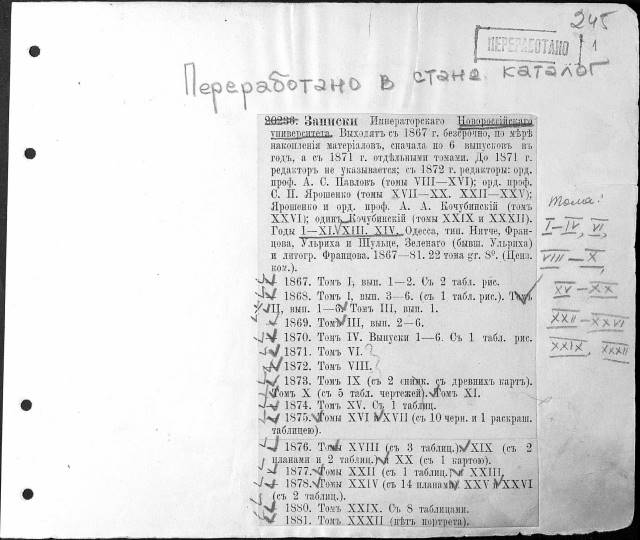 245
ПЕРЕРАБОТАНО
1
Переработано в стана. каталог
20236. Записки Императорскаго Новороссійскаго
университета. Выходятъ съ 1867 г. безсрочно, по мѣрѣ
накопленія матеріаловъ, сначала по 6 выпусковъ въ
годъ, а съ 1871 г. отдѣльными томами. До 1871 г.
редакторъ не указывается; съ 1872 г. редакторы: орд.
проф. А. С. Павловъ (томы VIII—XVI); орд. проф.
С. П. Ярошенко (томы XVII—XX. XXII—XXV);
Ярошенко и орд. проф. А. А. Кочубинскій (томъ
XXVI); одинъ Кочубинскій (томы XXIX и XXXII).
Годы I—XI. XIII. XIV. Одесса, тип. Нитче, Фран-
цова, Ульриха и Шульце, Зеленаго (бывш. Ульриха)
и литогр. Французова. 1867—81. 22 тома gr. 8º. (Ценз.
ком.).
1867. Томъ I, вып. 1—2. Съ 2 табл. рис.
1868. Томъ I, вып. 3—6. (съ 1 табл. рис.). Томъ
II, вып. 1—6. Томъ III, вып. 1.
1869. Томъ III, вып. 2—6.
1870. Томъ IV. Выпуски 1—6. Съ 1 табл. рис.
1871. Томъ VI. ?
1872. Томъ VIII. ?
1873. Томъ IX (съ 2 снимк. съ древнихъ картъ).
Томъ X (съ 5 табл. чертежей). Томъ XI.
1874. Томъ XV. Съ 1 таблиц.
1875. Томы XVI и XVII (съ 10 черн. и 1 раскраш.
таблицею).
1876. Томы XVIII (съ 3 таблиц.), XIX (съ 2
планами и 2 таблиц.) и XX (съ 1 картою).
1877. Томы XXII (съ 1 таблиц.) и XXIII.
1878. Томы XXIV (съ 14 планами), XXV и XXVI
(съ 2 таблиц.).
1880. Томъ XXIX. Съ 8 таблицами.
1881. Томъ XXXII (нѣтъ портрета).
тома:
I—IV, VI,
VIII—X,
XV—XX
XXII—XXVI
XXIX, XXXII